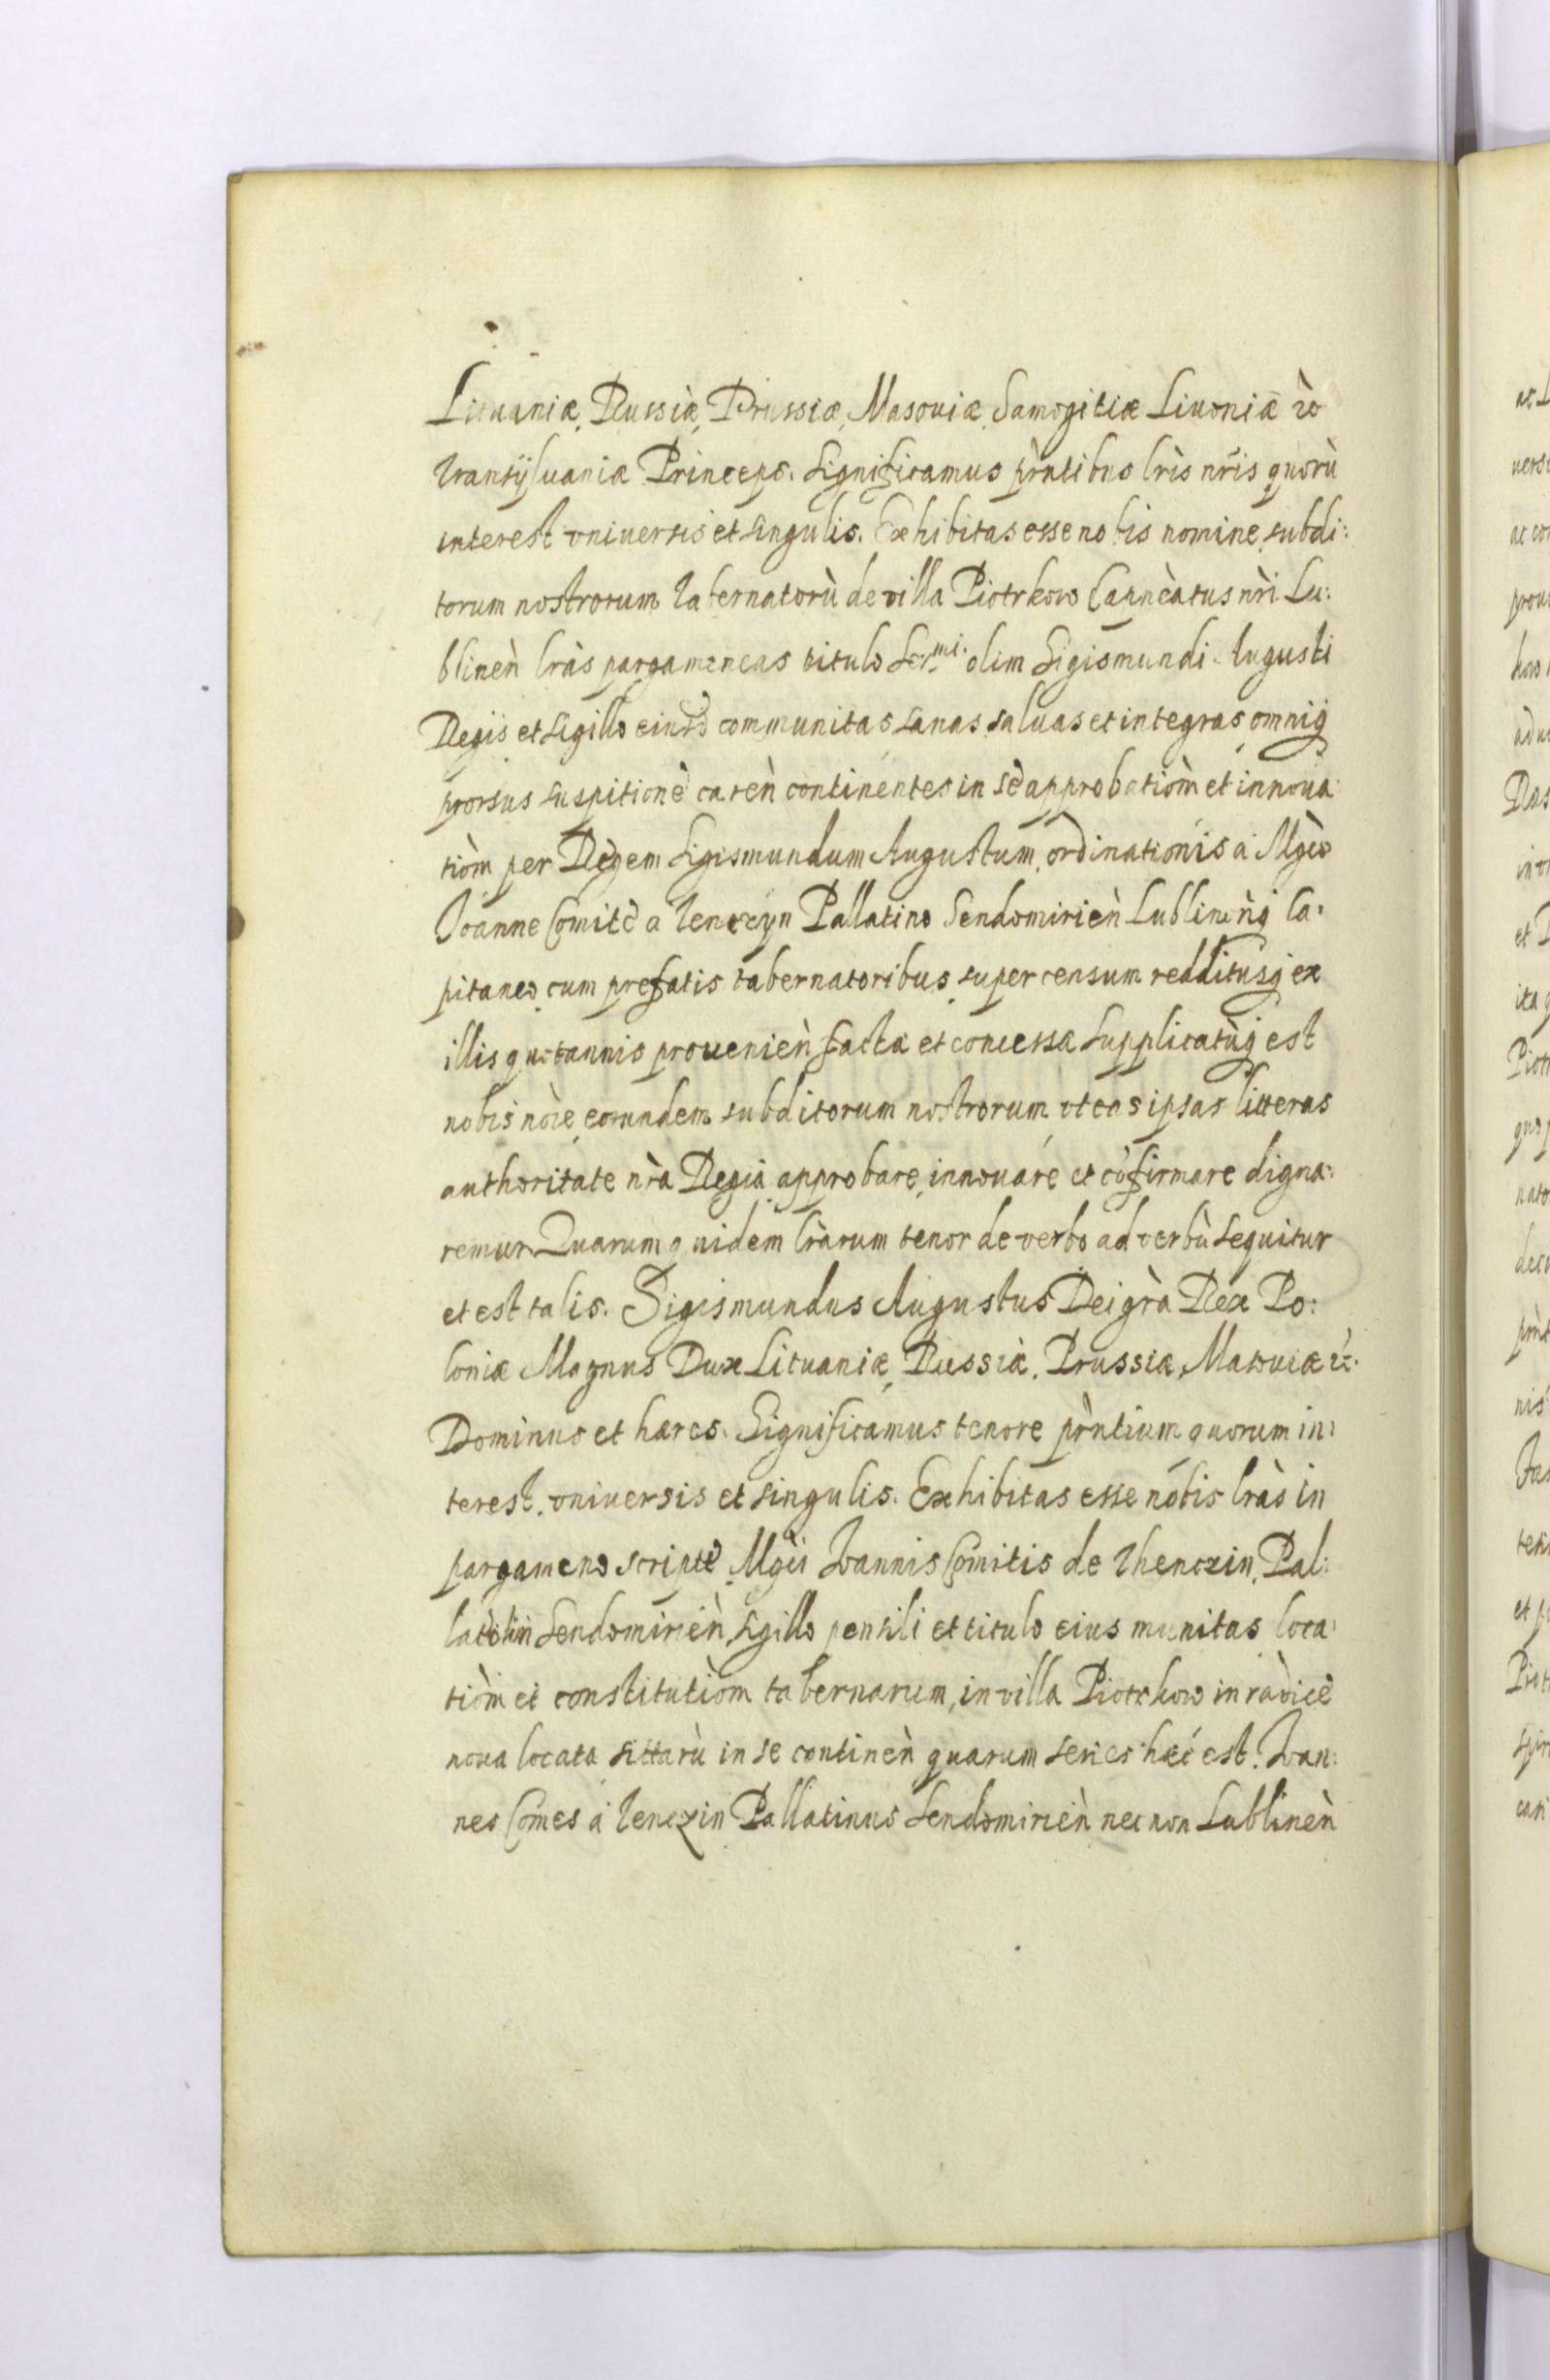 Lituaniæ, Russiæ, Prussiæ, Masouiæ, Samogitiæ Liuoniæ
Transyluaniæ Princeps. Significamus pr̀ntibus lr̀is nr̀is quorù
interest vniuersis et singulis. Exhibitas esse nobis nomine subdi:
torum nostrorum Tabernatorù de villa Piotrkow Capnèatus nr̀i Lu:
blineǹ lr̀as pargameneas titulo Ser.mi. olim Sigismundi Augusti
Regis et sigillo eiusd communitas sanas saluas et integras omniq̨
prorsus suspitionè careǹ continentes in se approbatiòm et innoua:
tiòm per Regem Sigismundum Augustum, ordinationis a Mgc̀o
Joanne Comite a Tenczyn Pallatino Sendomirieǹ Lublineǹq̨ Ca:
pitaneo cum prefatis tabernatoribus super censum redditusq̨ ex
illis quotannis prouenieǹ facta et concessa supplicatùq̨ est
nobis nòie eorundem subditorum nostrorum vt eas ipsas litteras
authoritate nr̀a Regia approbare, innouare et còfirmare digna:
remur. Quarum quidem lr̀arum tenor de verbo ad verbù sequitur
et est talis. Sigismundus Augustus Dei gr̀a Rex Po:
loniæ Magnus Dux Lituaniæ, Russiæ, Prussiæ, Masouiæ
Dominus et hæres. Significamus tenore pr̀ntium quorum in:
terest. vniuersis et singulis. Exhibitas esse nobis lr̀as in
pargameno scripte Mgc̀i Joannis Comitis de Thenczin, Pal:
Sendomirieǹ sigillo pensili et titulo eius munitas loca:
tiòm et constitutiòm tabernarum, in villa Piotrkow in radice
noua locata sittarù in se contineǹ quarum series hæc est. Joan:
nes Comes a Tenczin Pallatinus Sendomirieǹ nec non Lublineǹ